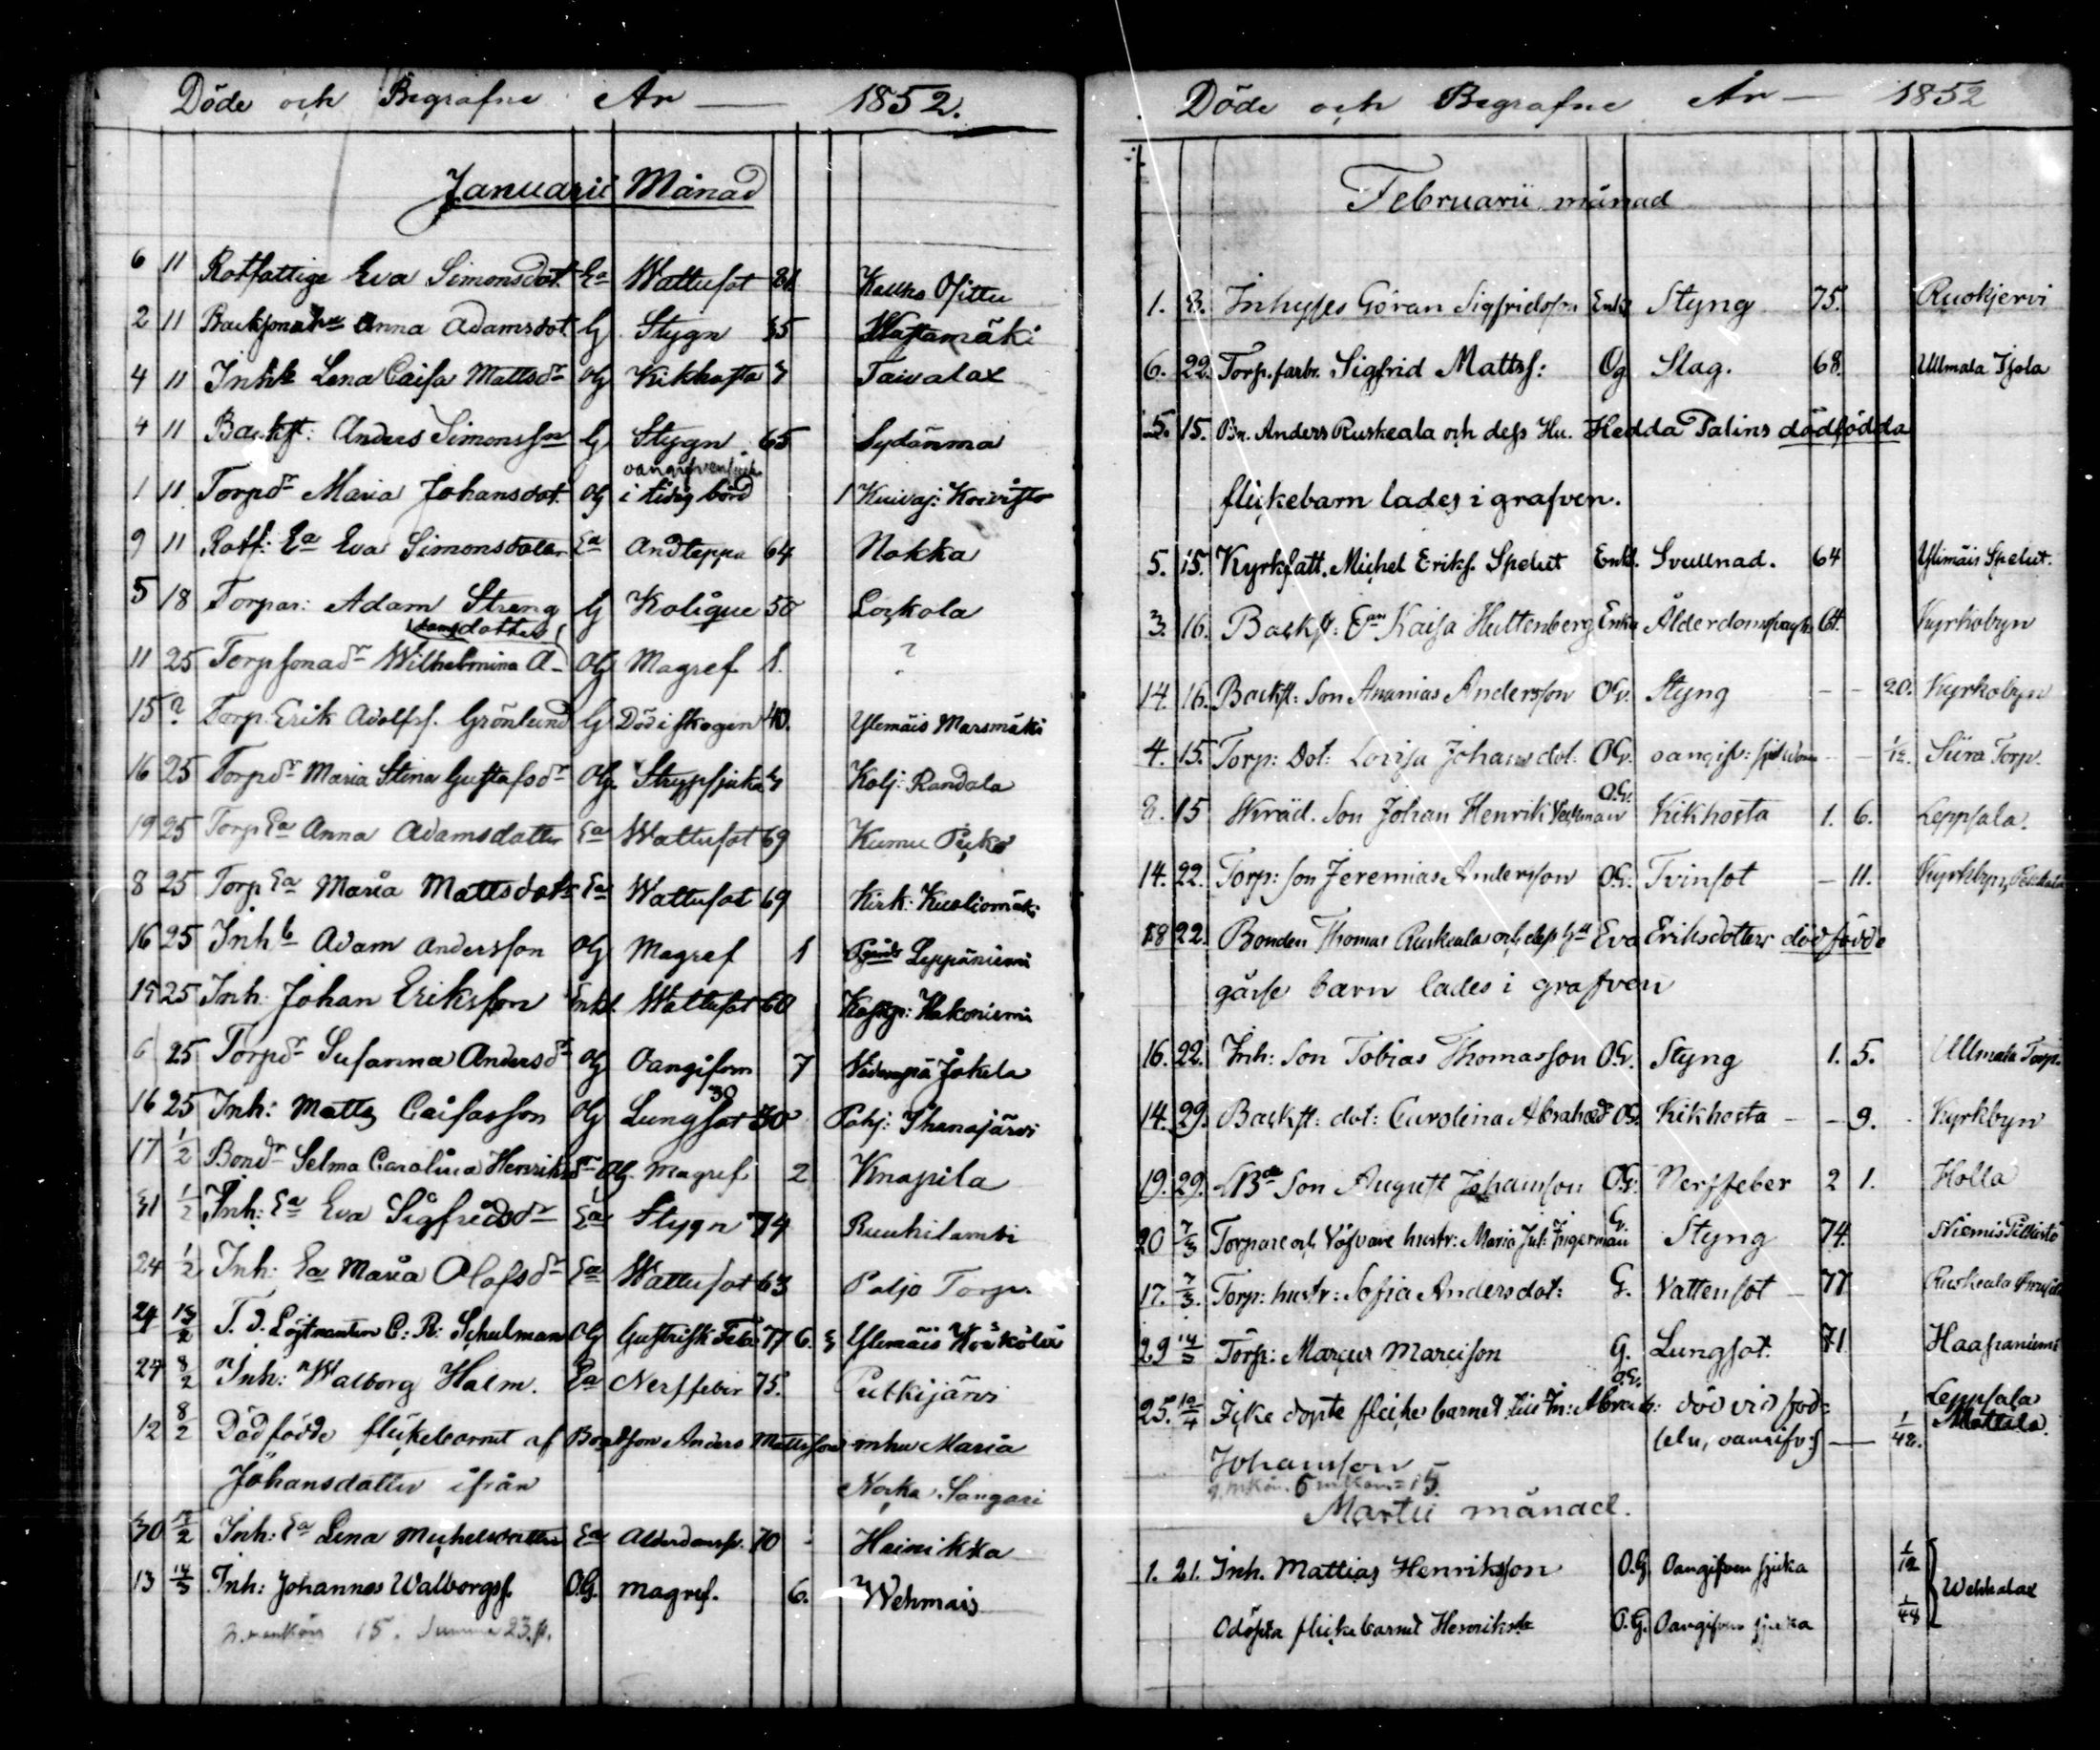 Döde och Begrafne År — 1852.
Januarii Månad
6 11 Rotfattige Eva Simonsdot. Ea Wattusot 81
2 11 Anna Adamsdot G Stygn 35
4 11 Inh Lena Caisa Mattsdr OG Kikhosta 3 Taivalax
4 11 Backst: Anders Simonsson G Stygn 65 Sydänma
1 11 Torpdr Maria Johansdot OG oangifven sjuk i tidig börd 1 Kuivaj: Koivisto
9 11 Rotf: Ea Eva Simonsdoter Ea Andteppa 64 Nokka
5 18 Torpar: Adam Streng G Kolique 50 Lockola
11 25 Torpsonadr Wilhelmina A- damsdotter OG Magref 1. ?
15 ? Torp. Erik Adolfss. Grönlund G Död i skogen 40. Ylemäis Marsmäki
16 25 Torpdr Maria Stina Gustafsdr OG. Strypsjuka 3 Kolj: Randala
19 25 Torp Ea Anna Adamsdotter Ea Wattusot 69
8 25 Torp Ea Maria Mattsdotr Ea Wattusot 69 Kirk:
16 25 Inh Adam Andersson OG Magref 1 Leppäniemi
15 25 Inh. Johan Eriksson Enkl. Wattusot 60 Hakoniemi
6 25 Torpdr Susanna Andersdr OG Oangifven 7 Jokela
16 25 Inh: Matts Caisasson OG Lungsot 30 Pohj: Ihanajärvi
17 1/2 Bondr Selma Carolina Henriksdr OG. Magref 2 Knapila
31 1/2 Inh: Ea Eva Sigfredsdr Ea Stygn 74 Ruuhilambi
24 1/2 Inh: Ea Maria Olofsdr Ea Wattusot 63 Paljo Torp.
24 15/2 T. d. Löjtnanten C: R: Schulman OG Gastrisk Feber 77 6. 3 Ylemäis
24 8/2 Inh: Walborg Halm. Ea Nerffeber 75. Putkijärvi
12 8/2 Dödfödde flickebarnet af Bondson Anders Mattsson m hu Maria
Johansdotter ifrån Norka Sangari
30 15/2 Inh: Ea Lena Michelsdotter Ea Alderdomsv. 70 - Heinikka
13 14/3 Inh: Johannes Walborgss. O.G. magref. 6. Wehmais
15. Summa 23.
Döde och Begrafne År — 1852
Februarii månad
1. 8. Inhyses Göran Sigfridsson Enkl Styng 75. Ruokjervi
6. 22. Torp. farbr. Sigfrid Mattss: Og Slag. 68. Ullmala Isola
5. 15. Bn. Anders Ruskeala och dess Hu. Hedda Palins dödfödda
flickebarn lades i grafven.
5. 15. Kyrkfatt. Michel Eriks. Spelut Enkl. Svullnad. 64 Ylimäis Spelut.
3. 16. Backst: Ean Kaisa Huttenberg Enka Ålderdomsvagh: 64. Kyrkobyn
14. 16. Backst: Son Ananias Andersson OG. Styng - - 20. Kyrkobyn
4. 15. Torp: Dot: Lovisa Johansdot: OG. oangif: sjukdom - - 1/12. Siira Torp.
8. 15 Skräd. Son Johan Henrik Veckman O.G. Kikhosta 1. 6. Leppsala.
14. 22. Torp: Son Jeremias Andersson O.G. Tvinsot - 11. Kyrkbyn,
18 22. Bonden Thomas Ruskeala och dess Hu Eva Eriksdotters död födde
gåsse barn lades i grafven
16. 22. Inh: Son Tobias Thomasson O.G. Styng 1. 5. Ullmala Torp.
14. 29. Backst: dot: Carolina Abrahad OG. Kikhosta - - 9. Kyrkbyn
19. 29. Bde Son August Johansson O.G. Nerffeber 2 1. Holla
20 7/3 Torpare och hustr: Maria Jul: Ingerman G. Styng 74. Niemis
17. 7/3. Torp: hustr: Sofia Andersdot: G. Vattensot - 77 Ruskeala
29 14/3 Torp: Marcus Marcison G. Lungsot. 71 Haapaniemi
25. 12/4 Icke döpte flicke barnet O.G. död vid föd-
seln, oangifv: — 1/48. Leppsala Mattala.
Johansson
Martii månad.
1. 21. Inh. Mattias Henriksson O.G. Oangifven sjuka 1/12
Odöpta flickebarnet Henriksdr O.G. Oangifven sjuka 1/48 Wehkalax